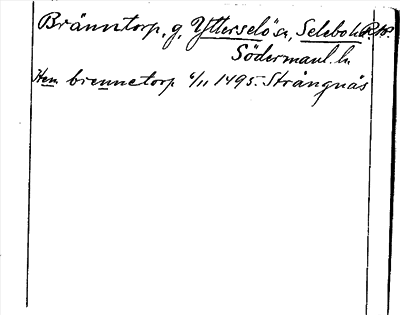 Bränntorp, g, Ytterselö sn, Selebo hd
Södermanl. ln
Item brennetorp 6/11 1495. Strängnäs